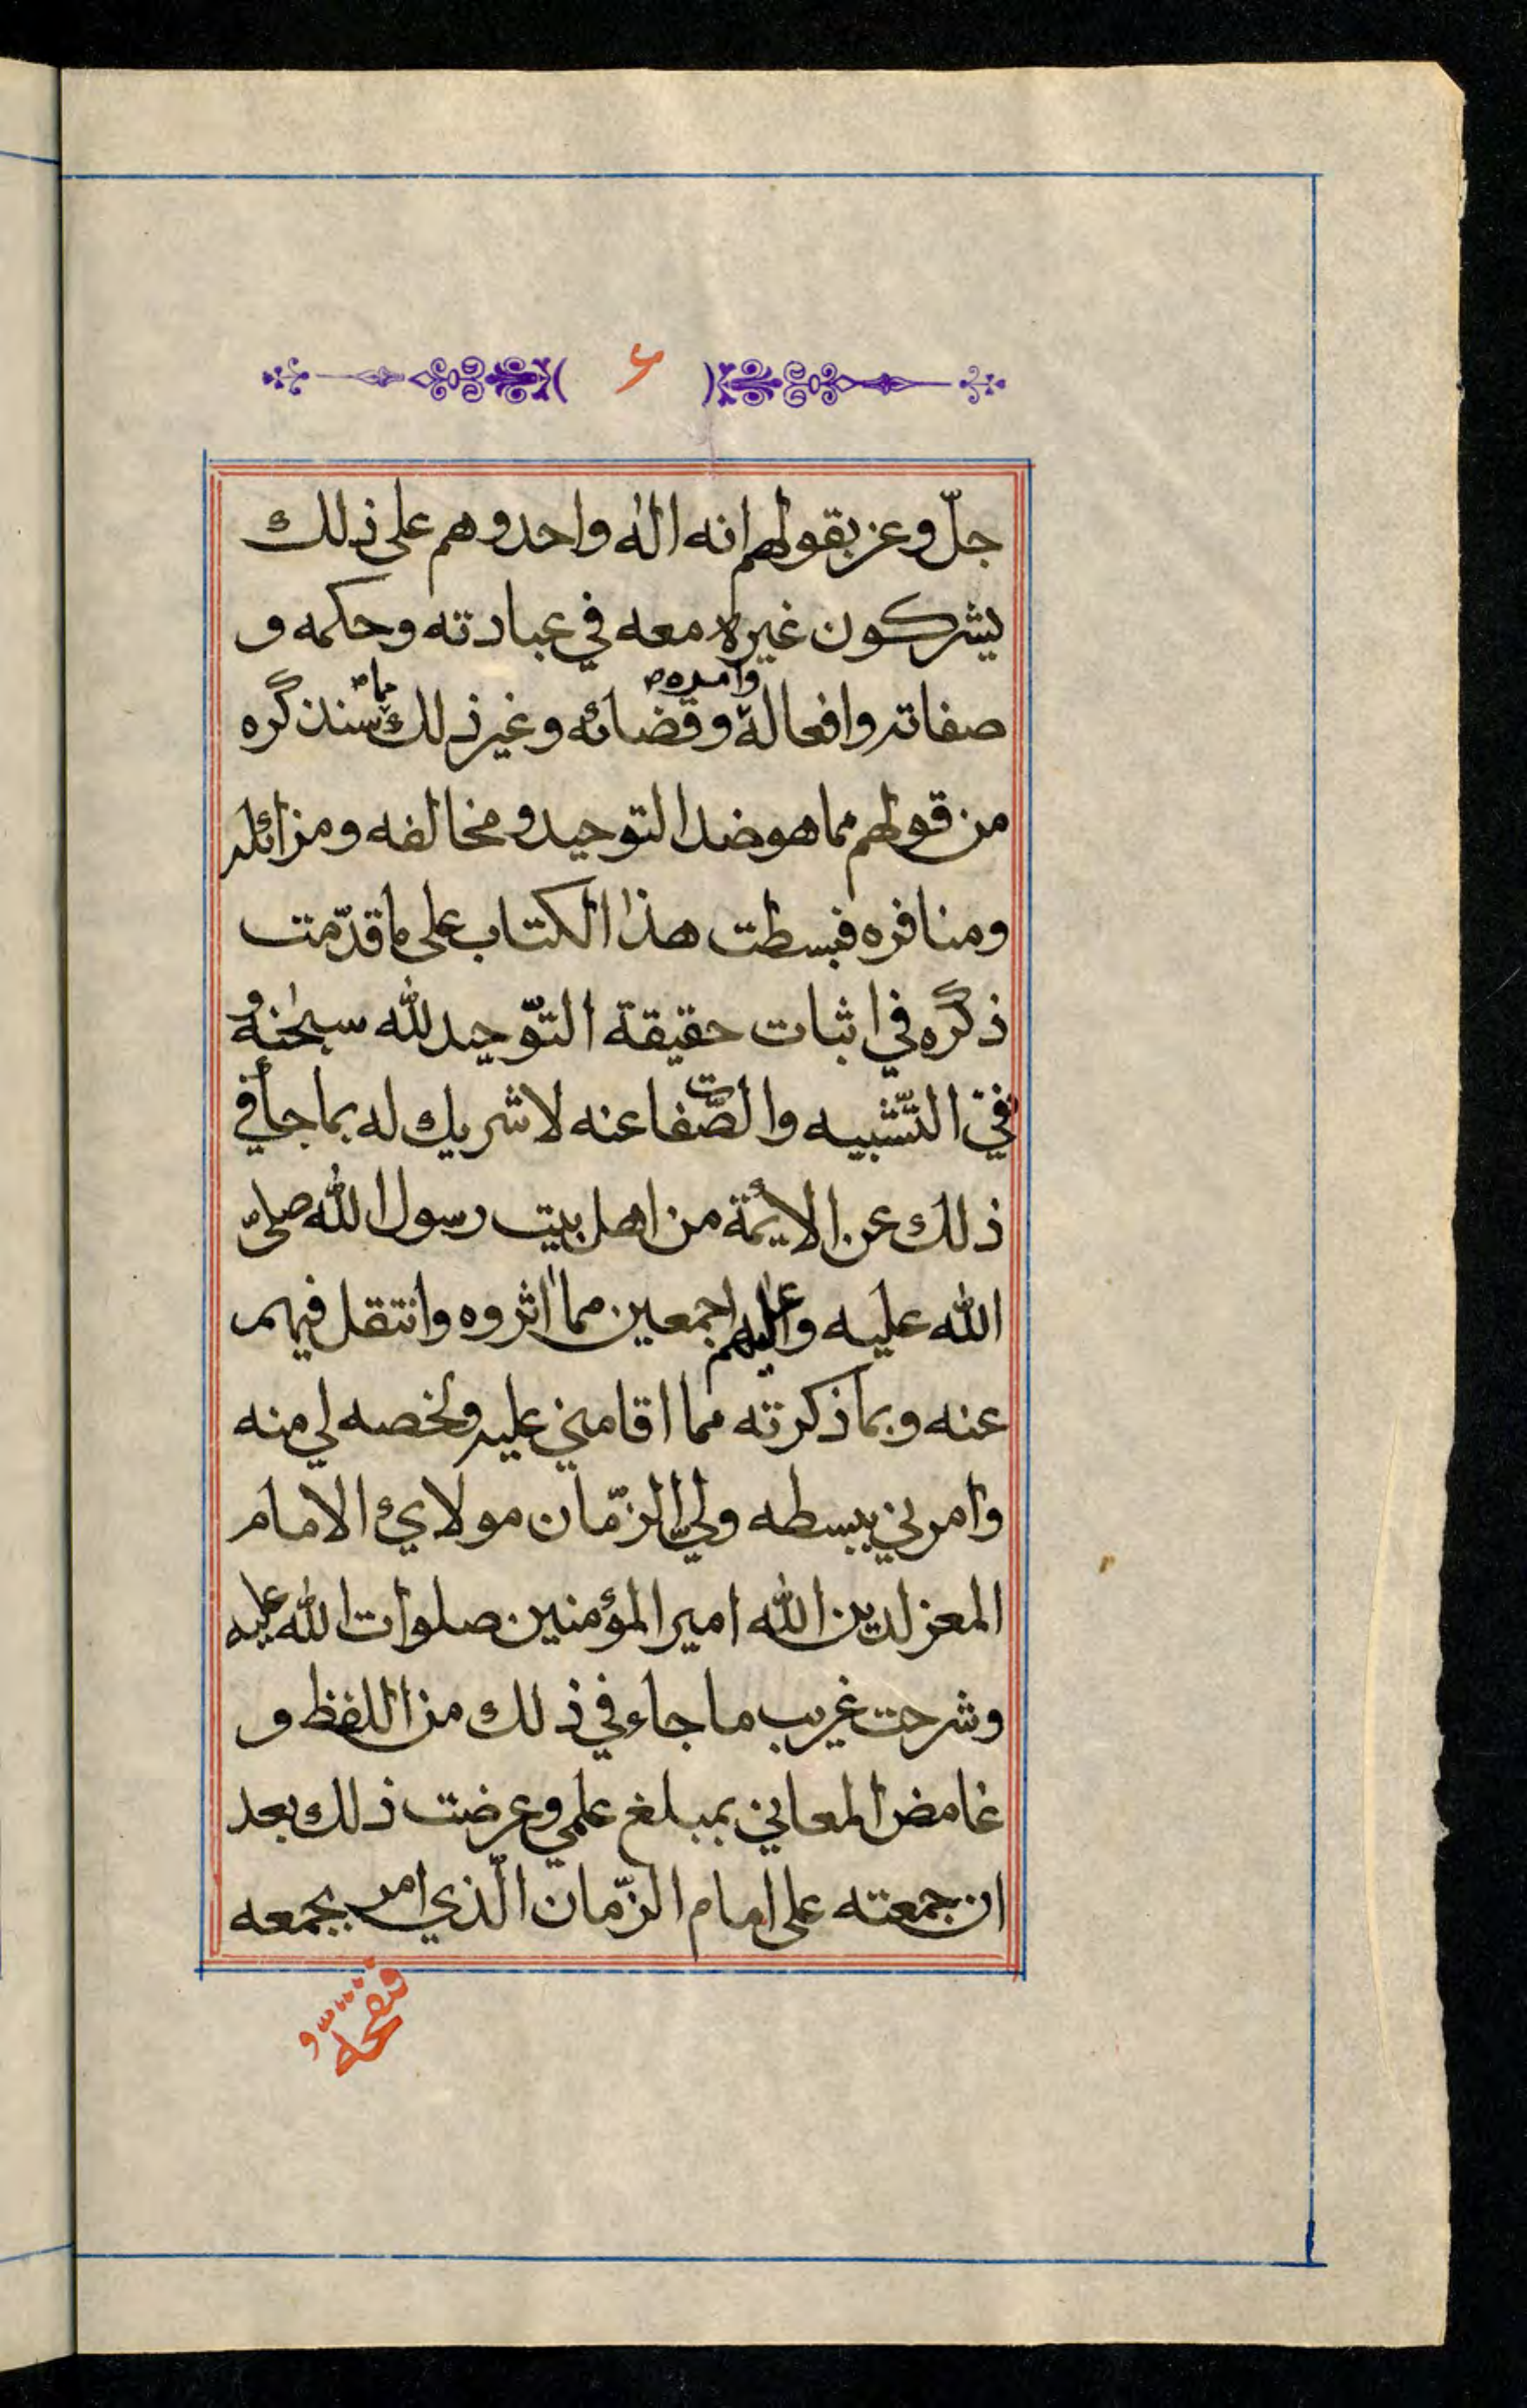 ۶
جلّ وعز بقولهم انه اله واحد وهم على ذلك
يشركون غيره معه في عبادته وحكمه و
صفاته وافعاله وامره وقضائه وغير ذلك مما سنذكره
من قولهم مما هو ضد التوحيد ومخالفه ومزائله
ومنافره فبسطت هذا الكتاب على ما قدّمت
ذكره في اثبات حقيقة التّوحيد لله سبحٰنه و
نفي التّشبيه والصّفات عنه لا شريك له بما جأ في
ذلك عن الايمّة من اهل بيت رسول الله صلى
الله عليه وعليهم اجمعين مما اثروه وانتقل فيهم
عنه وبما ذكرته مما اقامني عليه ولخصه لي منه
وامرني ببسطه وليّ الزّمان مولاي الامام
المعز لدين الله امير المؤمنين صلوات الله عليه
وشرحت غريب ما جاء في ذلك من اللفظ و
غامض المعاني بمبلغ علمي وعرضت ذلك بعد
ان جمعته على امام الزّمان الّذي امر بجمعه